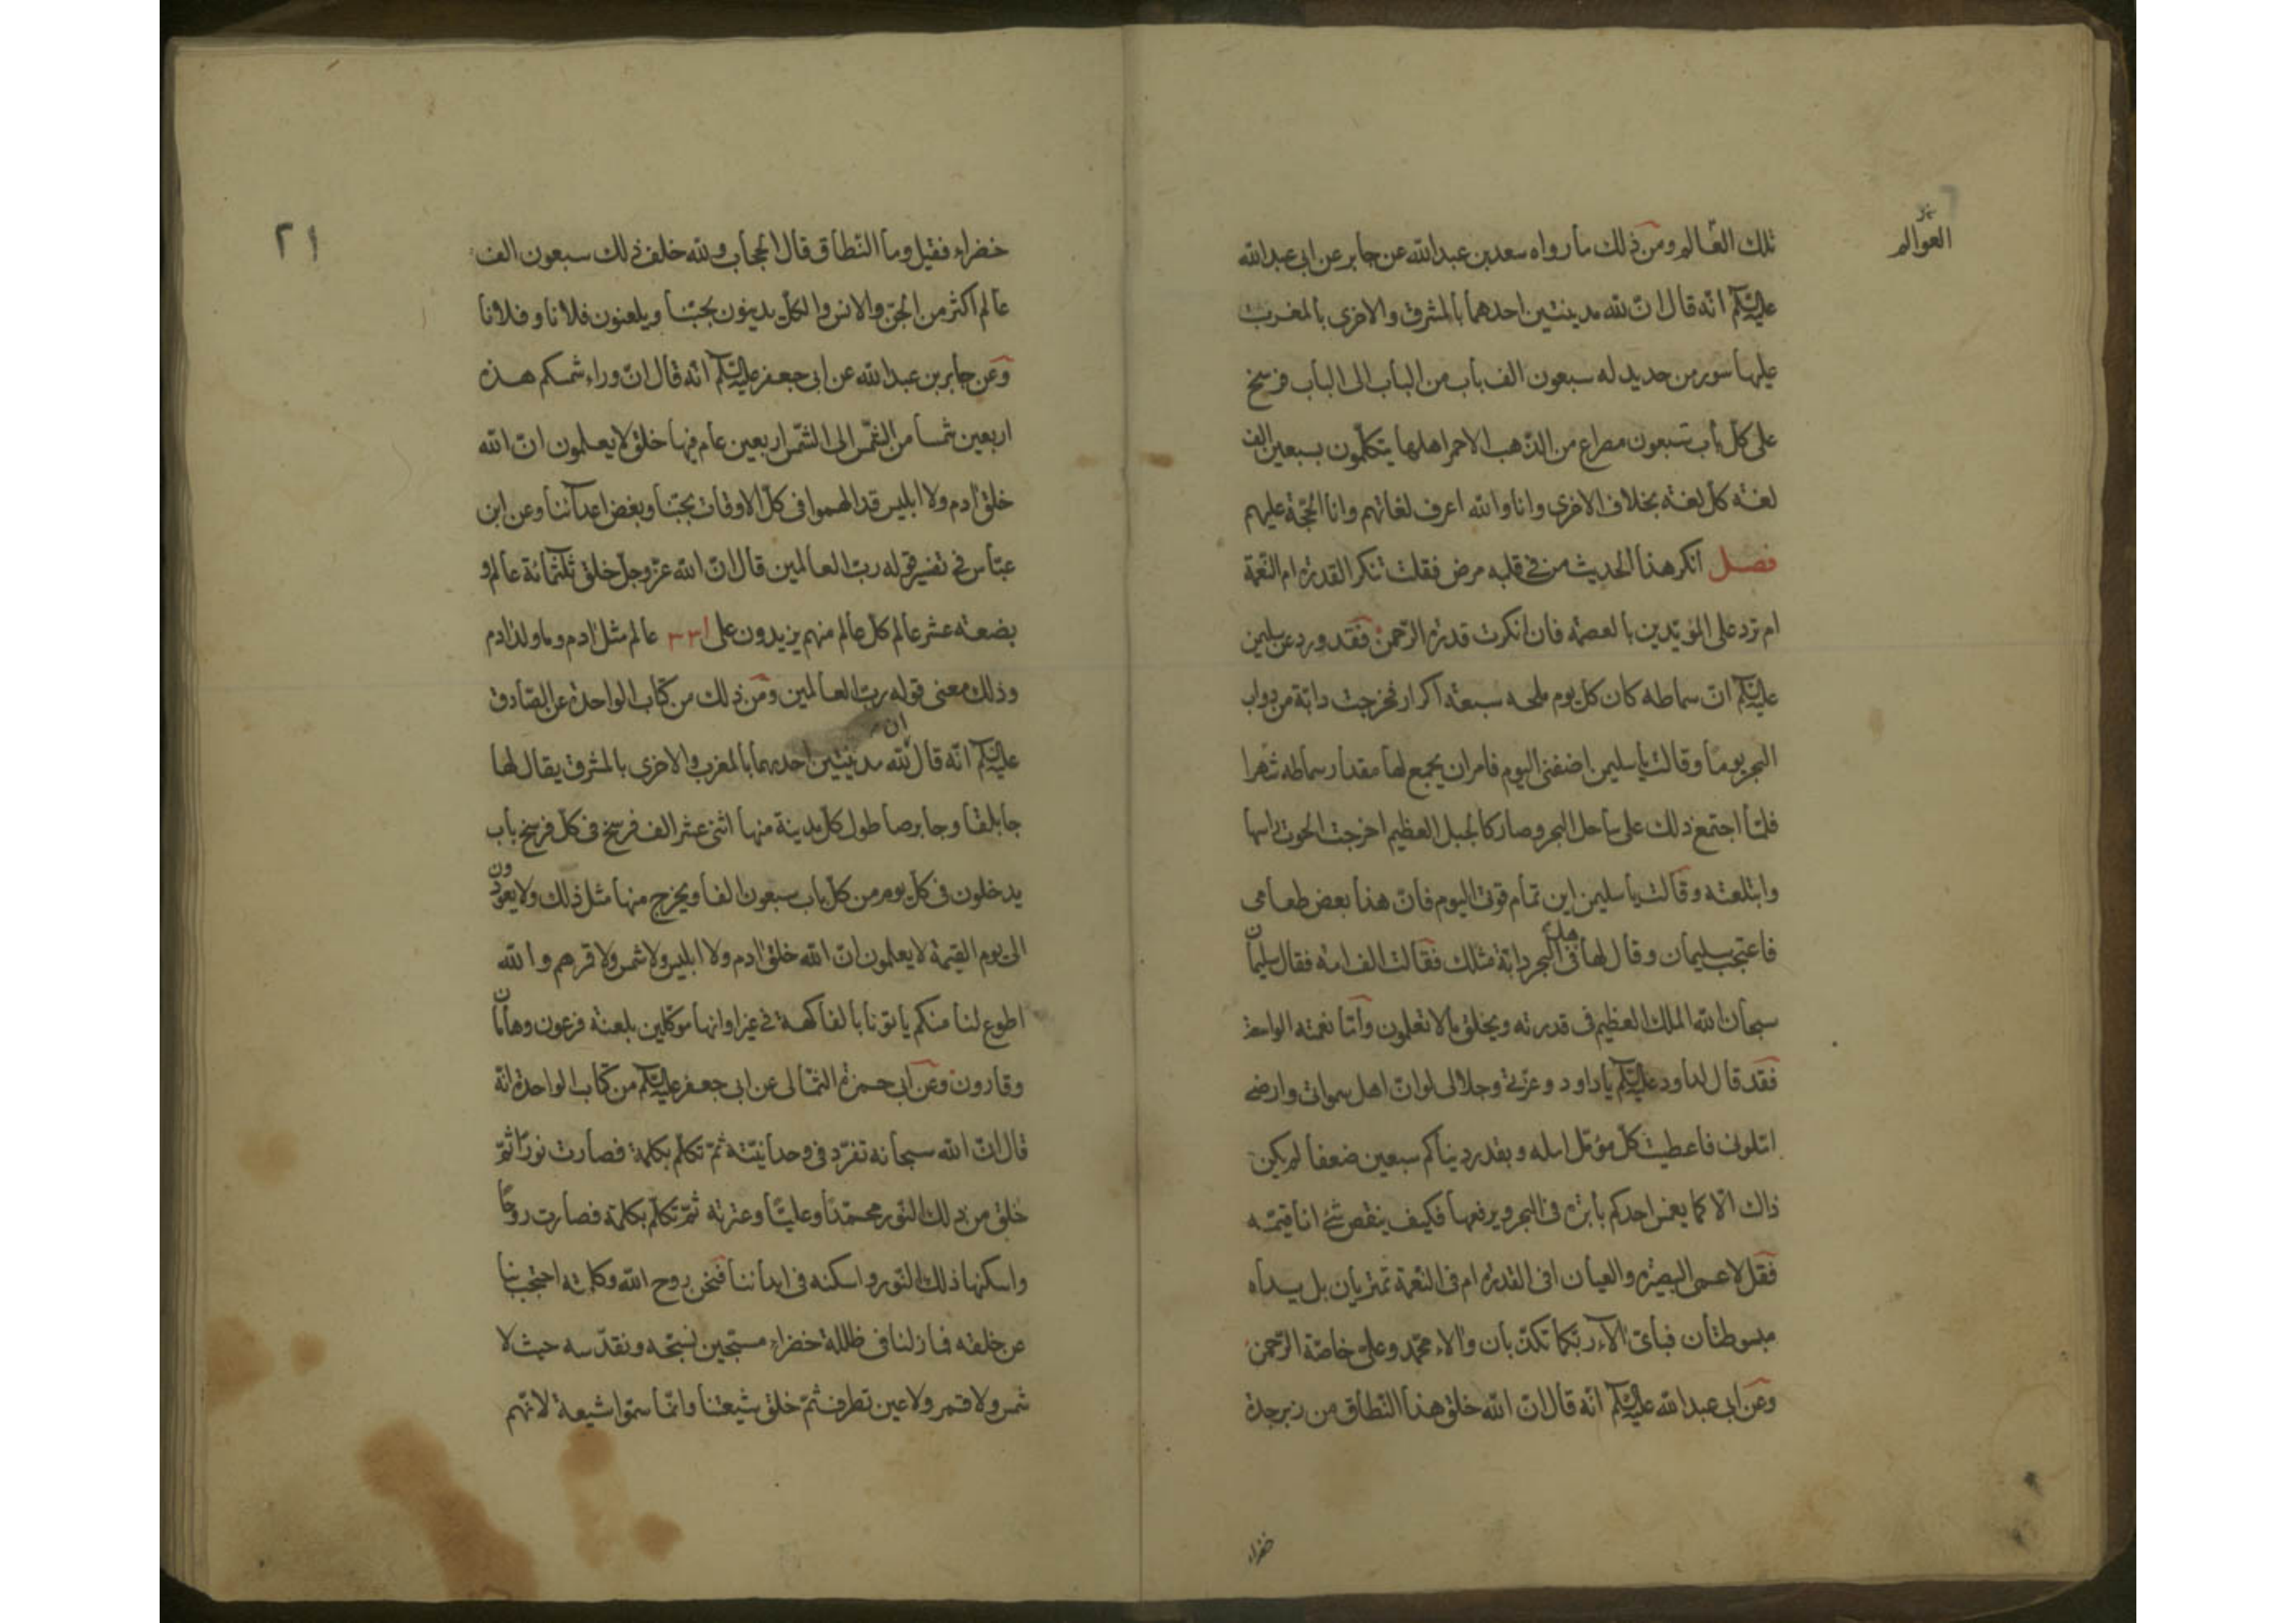 تلك العّالم ومن ذلك ما رواه سعد بن عبدالله عن جابر عن ابى عبدالله
العوالم
عليه السّلم انّه قال انّ لله مدينتين احدهما بالمشرق والاخرى بالمغرب
عليها سور من حديد له سبعون الف باب من الباب الى الباب فرسخ
على كلّ باب سبعون مصراع من الذّهب الاحمر اهلها يتكلّمون بسبعين الف
لغته كلّ لغته بخلاف الاخرى وانا والله اعرف لغاتهم وانا الحجّة عليهم
فصل انكر هذا الحديث من فى قلبه مرض فقلت تنكر القدرة ام النّعمة
ام ترد على المؤيّدين بالعصمة فان انكرت قدرة الرّحمن فقد ورد عن سليمن
عليه السّلم انّ سماطه كان كلّ يوم ملحه سبعة اكرار فخرجت دابّة من دواب
البحر يومًا وقالت يا سليمن اضفنى اليوم فامر ان يجمع لها مقدار سماطه شهرا
فلمّا اجتمع ذلك على ساحل البحر وصار كالجبل العظيم اخرجت الحوت راسها
وابتلعته وقالت يا سليمن اين تمام قوتى اليوم فانّ هذا بعض طعامى
فاعجب سليمان وقال لها هل فى البحر دابّة مثلك فقالت الف امة فقال سليمان
سبحان الله الملك العظيم فى قدرته ويخلق ما لا تعلمون وامّا نعمته الواسعة
فقد قال لداود عليه السّلم يا داود وعزّتى وجلالى لو انّ اهل سمواتى وارضى
امّلونى فاعطيت كلّ مؤمّل امله وبقدر دنياكم سبعين ضعفا لم يكن
ذاك الّا كما يغمس احدكم بابرة فى البحر ويرفعها فكيف ينقص شئ انا قيّمه
فقل لاعمى البصيرة والعيان افى القدرة ام فى النّعمة تمتريان بل يداه
مبسوطتان فباىّ الآء ربّكما تكذّبان والاء محمّد وعلىّ خاصّة الرّحمن
وعن ابى عبدالله عليه السّلم انّه قال انّ الله خلق هذا النّطاق من زبرجدة
خضراء
٢١
خضراء فقيل وما النّطاق قال الحجاب ولله خلف ذلك سبعون الف
عالم اكثر من الجنّ والانس والكلّ يدينون بحبّنا ويلعنون فلانا وفلانا
وعن جابر بن عبدالله عن ابى جعفر عليه السّلم انّه قال انّ وراء شمسكم هذه
اربعين شمسا من الشّمس الى الشّمس اربعين عام فيها خلق لا يعلمون انّ الله
خلق ادم ولا ابليس قد الهموا فى كلّ الاوقات بحبّنا وبغض اعدائنا وعن ابن
عبّاس فى تفسير قوله ربّ العالمين قال انّ الله عزّ وجلّ خلق ثلثمائة عالم و
بضعته عشر عالم كلّ عالم منهم يزيدون على ٣١٣ عالم مثل ادم وما ولد ادم
وذلك معنى قوله ربّ العالمين ومن ذلك من كتاب الواحدة عن الصّادق
عليه السّلم انّه قال ان لله مدينتين احديهما بالمغرب والاخرى بالمشرق يقال لها
جابلقا وجابرصا طول كلّ مدينة منها اثنى عشر الف فرسخ فى كلّ فرسخ باب
يدخلون فى كلّ يوم من كلّ باب سبعون الفا ويخرج منها مثل ذلك ولا يعودون
الى يوم القيمة لا يعلمون انّ الله خلق ادم ولا ابليس ولا شمس ولا قمر هم والله
اطوع لنا منكم ياتونا بالفاكهة فى غير اوانها موكّلين بلعنة فرعون وهامان
وقارون وعن ابى حمزة الثمالى عن ابى جعفر عليه السّلم من كتاب الواحدة انّه
قال انّ الله سبحانه تفرّد فى وحدانيّته ثمّ تكلّم بكلمة فصارت نورًا ثمّ
خلق من ذلك النّور محمّدًا وعليّا وعترته ثمّ تكلّم بكلمة فصارت روحًا
واسكنها ذلك النّور واسكنه فى ابداننا فنحن روح الله وكلمته احتجب بنا
عن خلقه فما زلنا فى ظللة خضراء مسبّحين نسبّحه ونقدّسه حيث لا
شمس ولا قمر ولا عين تطرف ثمّ خلق شيعتنا وانّما سمّوا شيعة لانّهم